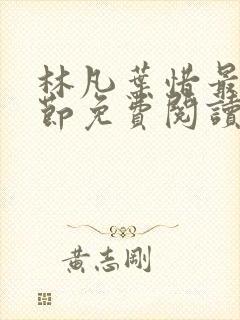 林凡葉惜最
節免費閱讀
黃志剛